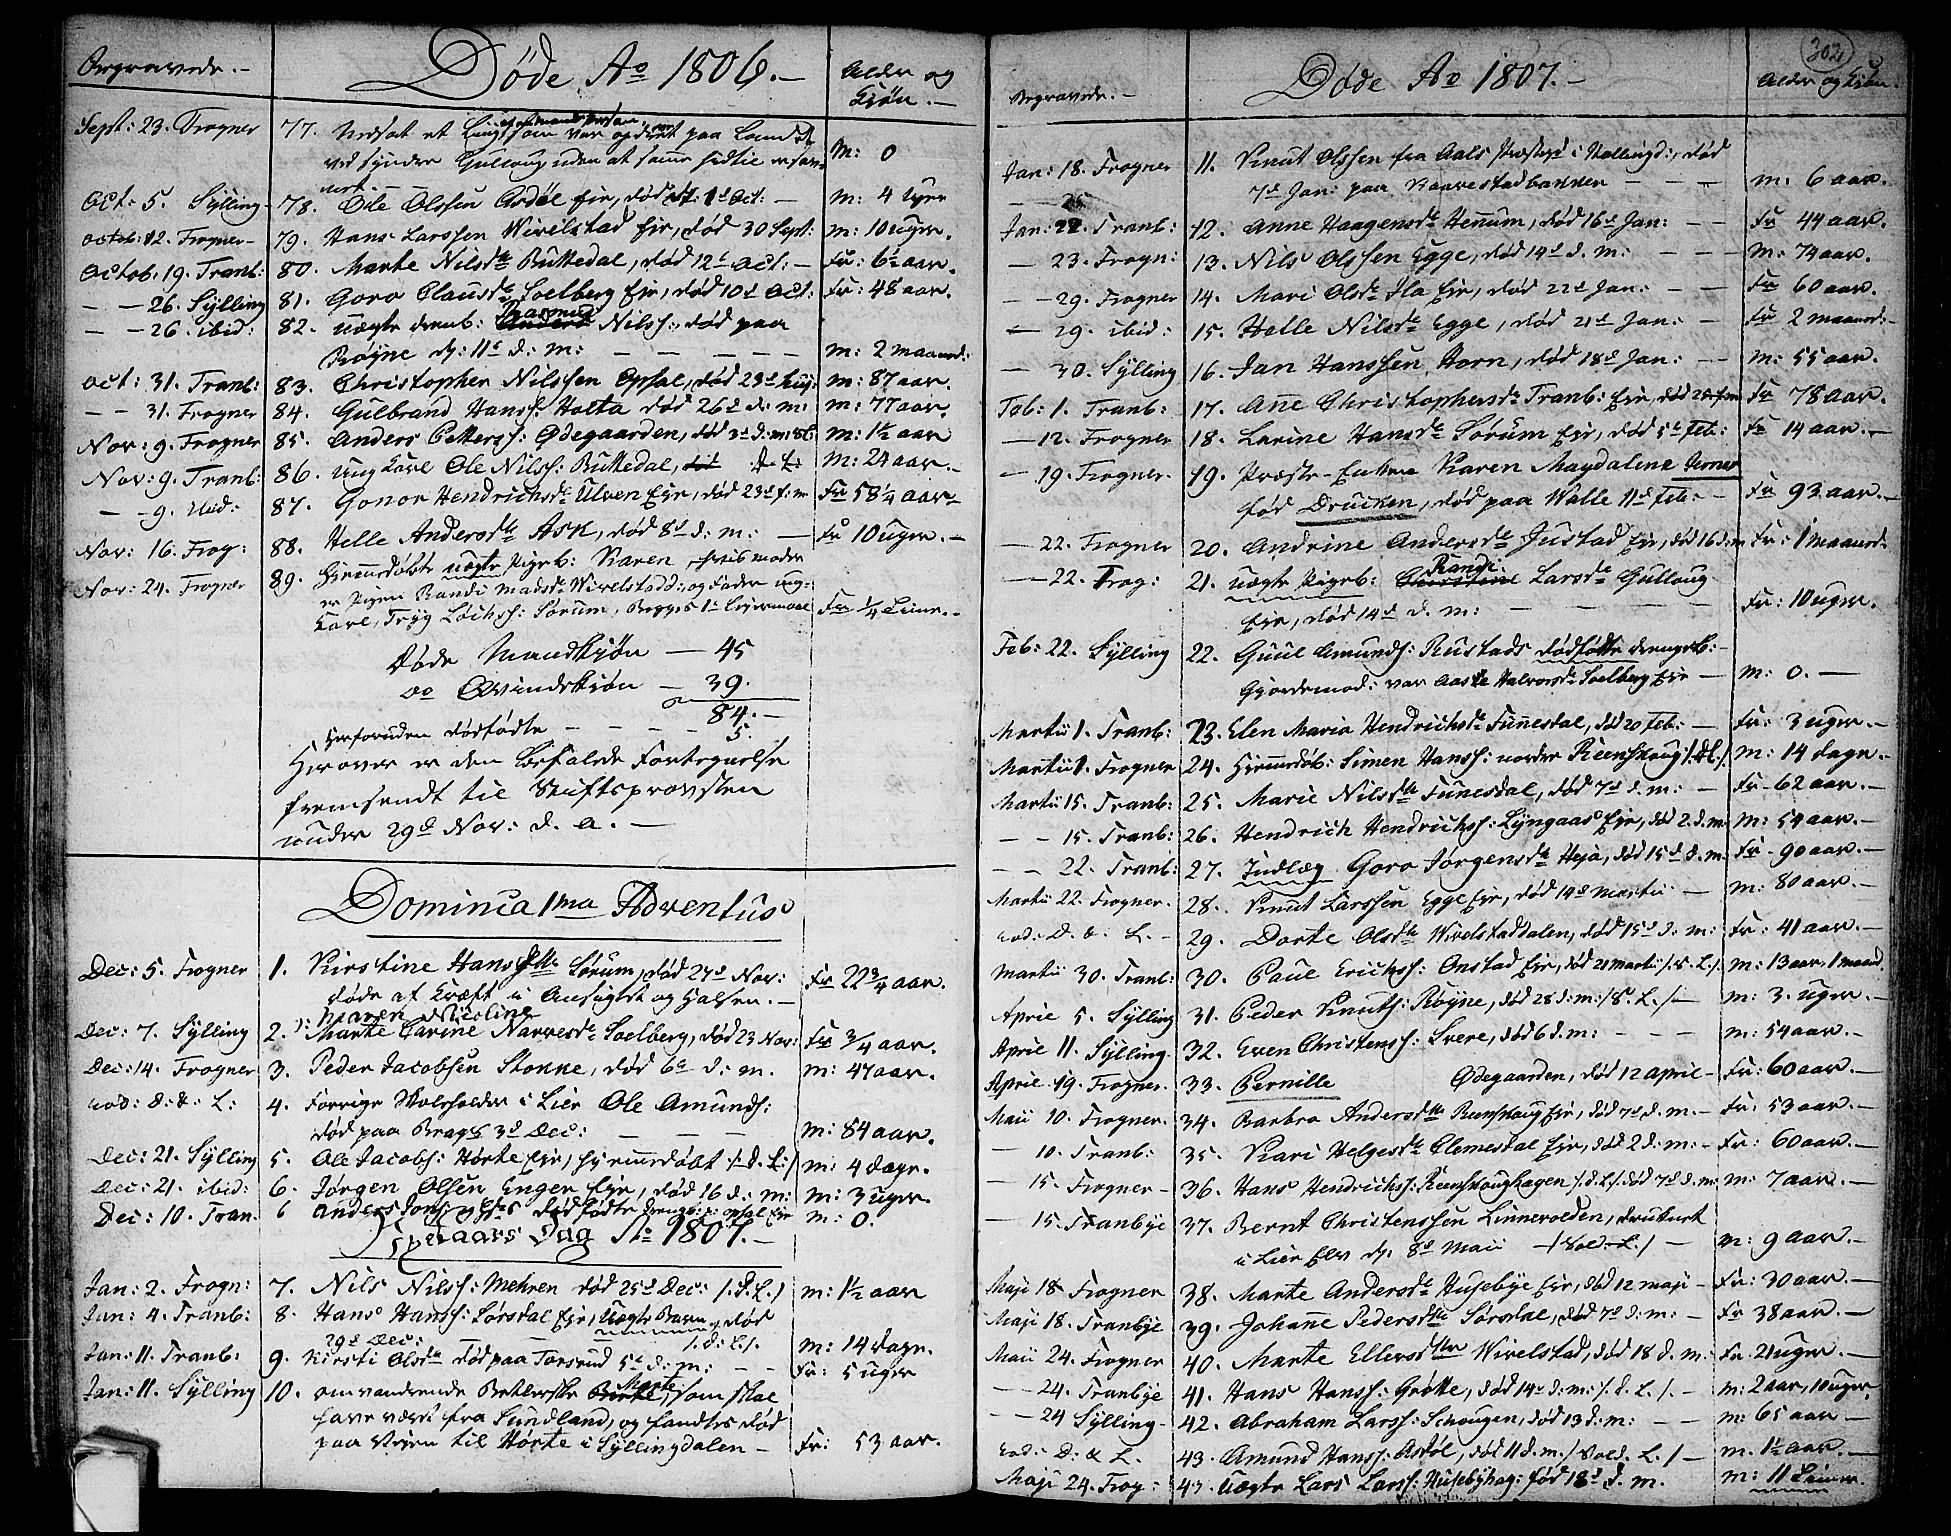 Begravede.— Døde Aº 1806.— Alder og Kiøn.—
Sept: 23. Frogner 77. Udsat et Liig som var opdrevet paa Landet M: 0
ved Gullaug uden at samme hidtil er
Oct: 5. Sylling 78. Ole Olssen Asdøl Eje, død 1d Oct:— M: 4 Uger
Octob: 12. Frogner 79. Hans Larssen Wivelstad Eje, død 30 Sept: M: 10 uger.
Octob. 19. Tranb: 80. Marte Nilsd: Buttedal, død 12d Oct:— Fr: 6½ aar.
— — 26. Sylling 81. Goro Clausd: Soelberg Eje, død 10d Oct: Fr: 48 aar.
— — 26. ibid: 82. uægte dreb: Rasmus Nils: død paa
Røyne d: 11t d: m: — — — M: 2 maaned:
Oct: 31. Tranb: 83. Christopher Nilssen Opsal, død 23d huj: M: 87 aar.
— — 31. Frogner 84. Gulbrand Hanss: Holta død 26d d: m: M: 77 aar.
Nov: 9. Frogner 85. Anders Petterss: Ødegaarden, død 3d d: m: M: 1½ aar
Nov: 9. Tranb: 86. ung Karl Ole Nilss: Buttedal, M: 24 aar.—
— — 9. ibid: 87. Gonor Hendrichsd: Ulven Eje, død 23d f: m Fr 58¼ aar—
Nov: 16. Frog: 88. Helle Andersd: Ask, død 8d d: m:— Fr 10 uger.—
Nov: 24. Frogner 89. Hjemmedøbt uægte Pigeb: Karen, hvis moder
er Pigen Randi Madsd: Wivelstad: og Fader ung-
Karl, Tryg Sørum, Begges 1te Leiermaal Fr ¼ Time.—
Døde Mandkjøn — 45
do Qvindekiøn — 39.
84.—
Herforuden dødfødte — — — 5.
Herover er den befalede Fortegnelse
fremsendt til Stiftsprovsten
under 29d Nov: d. a. —
Dominica 1ma Adventus
Dec: 5. Frogner 1. Kirstine Hansd: Sørum, død 27d Nov: Fr 22¾ aar.
døde af Kræft i Ansigtet og Halsen.—
Dec: 7. Sylling 2. Marte Carine Narvesd: Soelberg, død 23 Nov: Fr ¾ aar.
Dec: 14. Frogner 3. Peder Jacobsen Stokke, død 6d d: m. M: 47 aar.
eod: d: & L: 4. Forrige Skoleholder i Lier Ole Amunds:
død paa Brags 3d Dec: — — — M: 84 aar.
Dec: 21. Sylling 5. Ole Jacobs: Hørte Eje, hjemmedøbt /:d. L:/ M: 4 dage.
Dec: 21. ibid: 6. Jørgen Olsen Enger Eje, død 16 d: m: M: 3 uger.
Dec: 10. Tran. 6 Anders dødfødte drengeb: Opsal Eje M: 0.
Nytaars Dag Aº 1807.—
Jan: 2. Frogn: 7. Nils Nilss: Mehren død 25d Dec: /.d.L./ M: 1½ aar
Jan: 4. Tranb: 8. Hans Hanss: Sørsdal Eje, uægte Barn, død
29d Dec: /.d:L./. M: 14 dage.
Jan: 11. Tranb: 9. Kirsti Olsd: død paa Torsrud 5d d: m: — — Fr: 5 uger
Jan: 11. Sylling 10. omvandrende Betlerske Marte, som skal
have været fra Sundland, og fandtes død
paa Veien til Hørte i Syllingdalen — Fr: 53 aar.
302
Begravede.— Døde Aº 1807.— Alder og Kiøn.
Jan: 18. Frogner 11. Knut Olssen fra Aals Præstegd i Hallingd:, død
7d Jan: paa Kaarestadbakken — — — M: 6 aar.
— 25
Jan: 22. Tranb: 12. Anne Haagensd: Henum, død 16d Jan: — Fr 44 aar.
— 23. Frogn: 13. Nils Olssen Egge, død 14d d. m: — — M: 74 aar.
— 29. Frogner 14. Mari Olsd: Ila Eje, død 22d Jan: — — Fr 60 aar.
— 29. ibid: 15. Helle Nilsd: Egge, død 21d Jan: — Fr 2 maaned:—
— 30. Sylling 16. Jan Hanssen Horn, død 18d Jan: — — M: 55 aar.
Feb: 1. Tranb: 17. Anne Christophersd: Tranb: Eje, død Fr 78 aar.
— 12. Frogner 18. Larine Hansd: Sørum Eje, død 5d Feb: Fr 14 aar.—
— 19. Frogner 19. Præste-Enken Karen Magdalene Jerner
fød Drucken, død paa Walle 11d Feb:— Fr 93 aar.—
— 22. Frogner 20. Andrine Andersd: Justad Eje, død 16 d: m Fr: 1 maaned—
— 22. Frog: 21. uægte Pigeb: Randi Larsd: Gullaug
Eje, død 14d d. m: — — — Fr: 10 uger.
Feb: 22. Sylling 22. Guul Amunds: Rustads dødfødte drengeb:—
Gjordemod: var Aaste Halvorsd: Soelberg Eje — M: 0.—
Martii 1. Tranb: 23. Elen Maria Hendrichsd: Funesdal, død 20 Feb:— Fr: 3 uger.—
Martii 1. Frogner 24. Hjemmedøb: Simen Hanss: nordre Reenskoug /:d:L./ M: 14 dage.
Martii 15. Tranb: 25. Marie Nilsd: Funesdal, død 7d d. m:— Fr- 62 aar.—
— — 15. Tranb: 26. Hendrich Hendrichss: Lyngaas Eje, død 2. d. m: M: 54 aar.—
— — 22. Tranb: 27. Indlæg Goro Jørgensd: Heja, død 15d d. m. Fr- 90 aar.—
Martii 22. Frogner. 28. Knut Larssen Egge Eje, død 14d Martii — M: 80 aar.—
eod: D. & L.— 29. Dorte Olsd: Wivelstaddalen, død 15d d: m: Fr: 41 aar.—
Martii 30. Tranb: 30. Paul Erichss: Onstad Eje, død 21 Martii /.d.L./. M: 13 aar, 1 maaned.
April 5. Sylling 31. Peder Knuts: Røyne, død 28 d: m: /:d.L./— M: 3. uger.—
April 11. Sylling. 32. Even Christenss: Svere, død 6 d. m: — — — M: 54 aar.—
April 19. Frogner. 33. Pernille Ødegaarden, død 12 April— Fr: 60 aar.—
Maii 10. Frogner. 34. Barbra Andersd: Reenskoug Eje, død 7d d. m.— Fr: 53 aar.—
— 10. Tranb: 35. Kari Helgesd: Clemestal Eje, død 2 d: m:— Fr: 60 aar.
— 15. Frogner— 36. Hans Hendrichss: Reenskoughagen /.d.L./. død 7d d. m M: 7 aar.—
— 15. Tranbye 37. Bernt Christenssen Linnerolden, druknet
i Lier Elv d: 8d Maii —/:vold:L:/— M: 9 aar.—
Maji 18 Frogner 38. Marte Andersd: Husebye Eje, død 12 maji— Fr: 30 aar.—
Maji 18. Tranbye 39. Johanne Pedersd: Sørsdal, død 7d d. m:— Fr 38 aar.—
Maii 24. Frogner 40. Marte Ellensd: Wivelstad, død 18 d. m. Fr. 21 uger.—
— 24. Tranbye 41. Hans Hanss: Grøtte, død 14d d: m: /.d. L./.— M: 2 aar, 10 uger.
— 24 Sylling— 42. Abraham Larss: Schougen, død 13 d. m: — — M: 65 aar—
eod: D: & L. 43. Amund Hanss: Asdøl, død 11 d. m. /:vold. L./— M. 1½ aar.—
Maji 24. Frog: 43. uægte Lars Larss: Husebyhag: fød 18d d. m. M: 11 Timer.